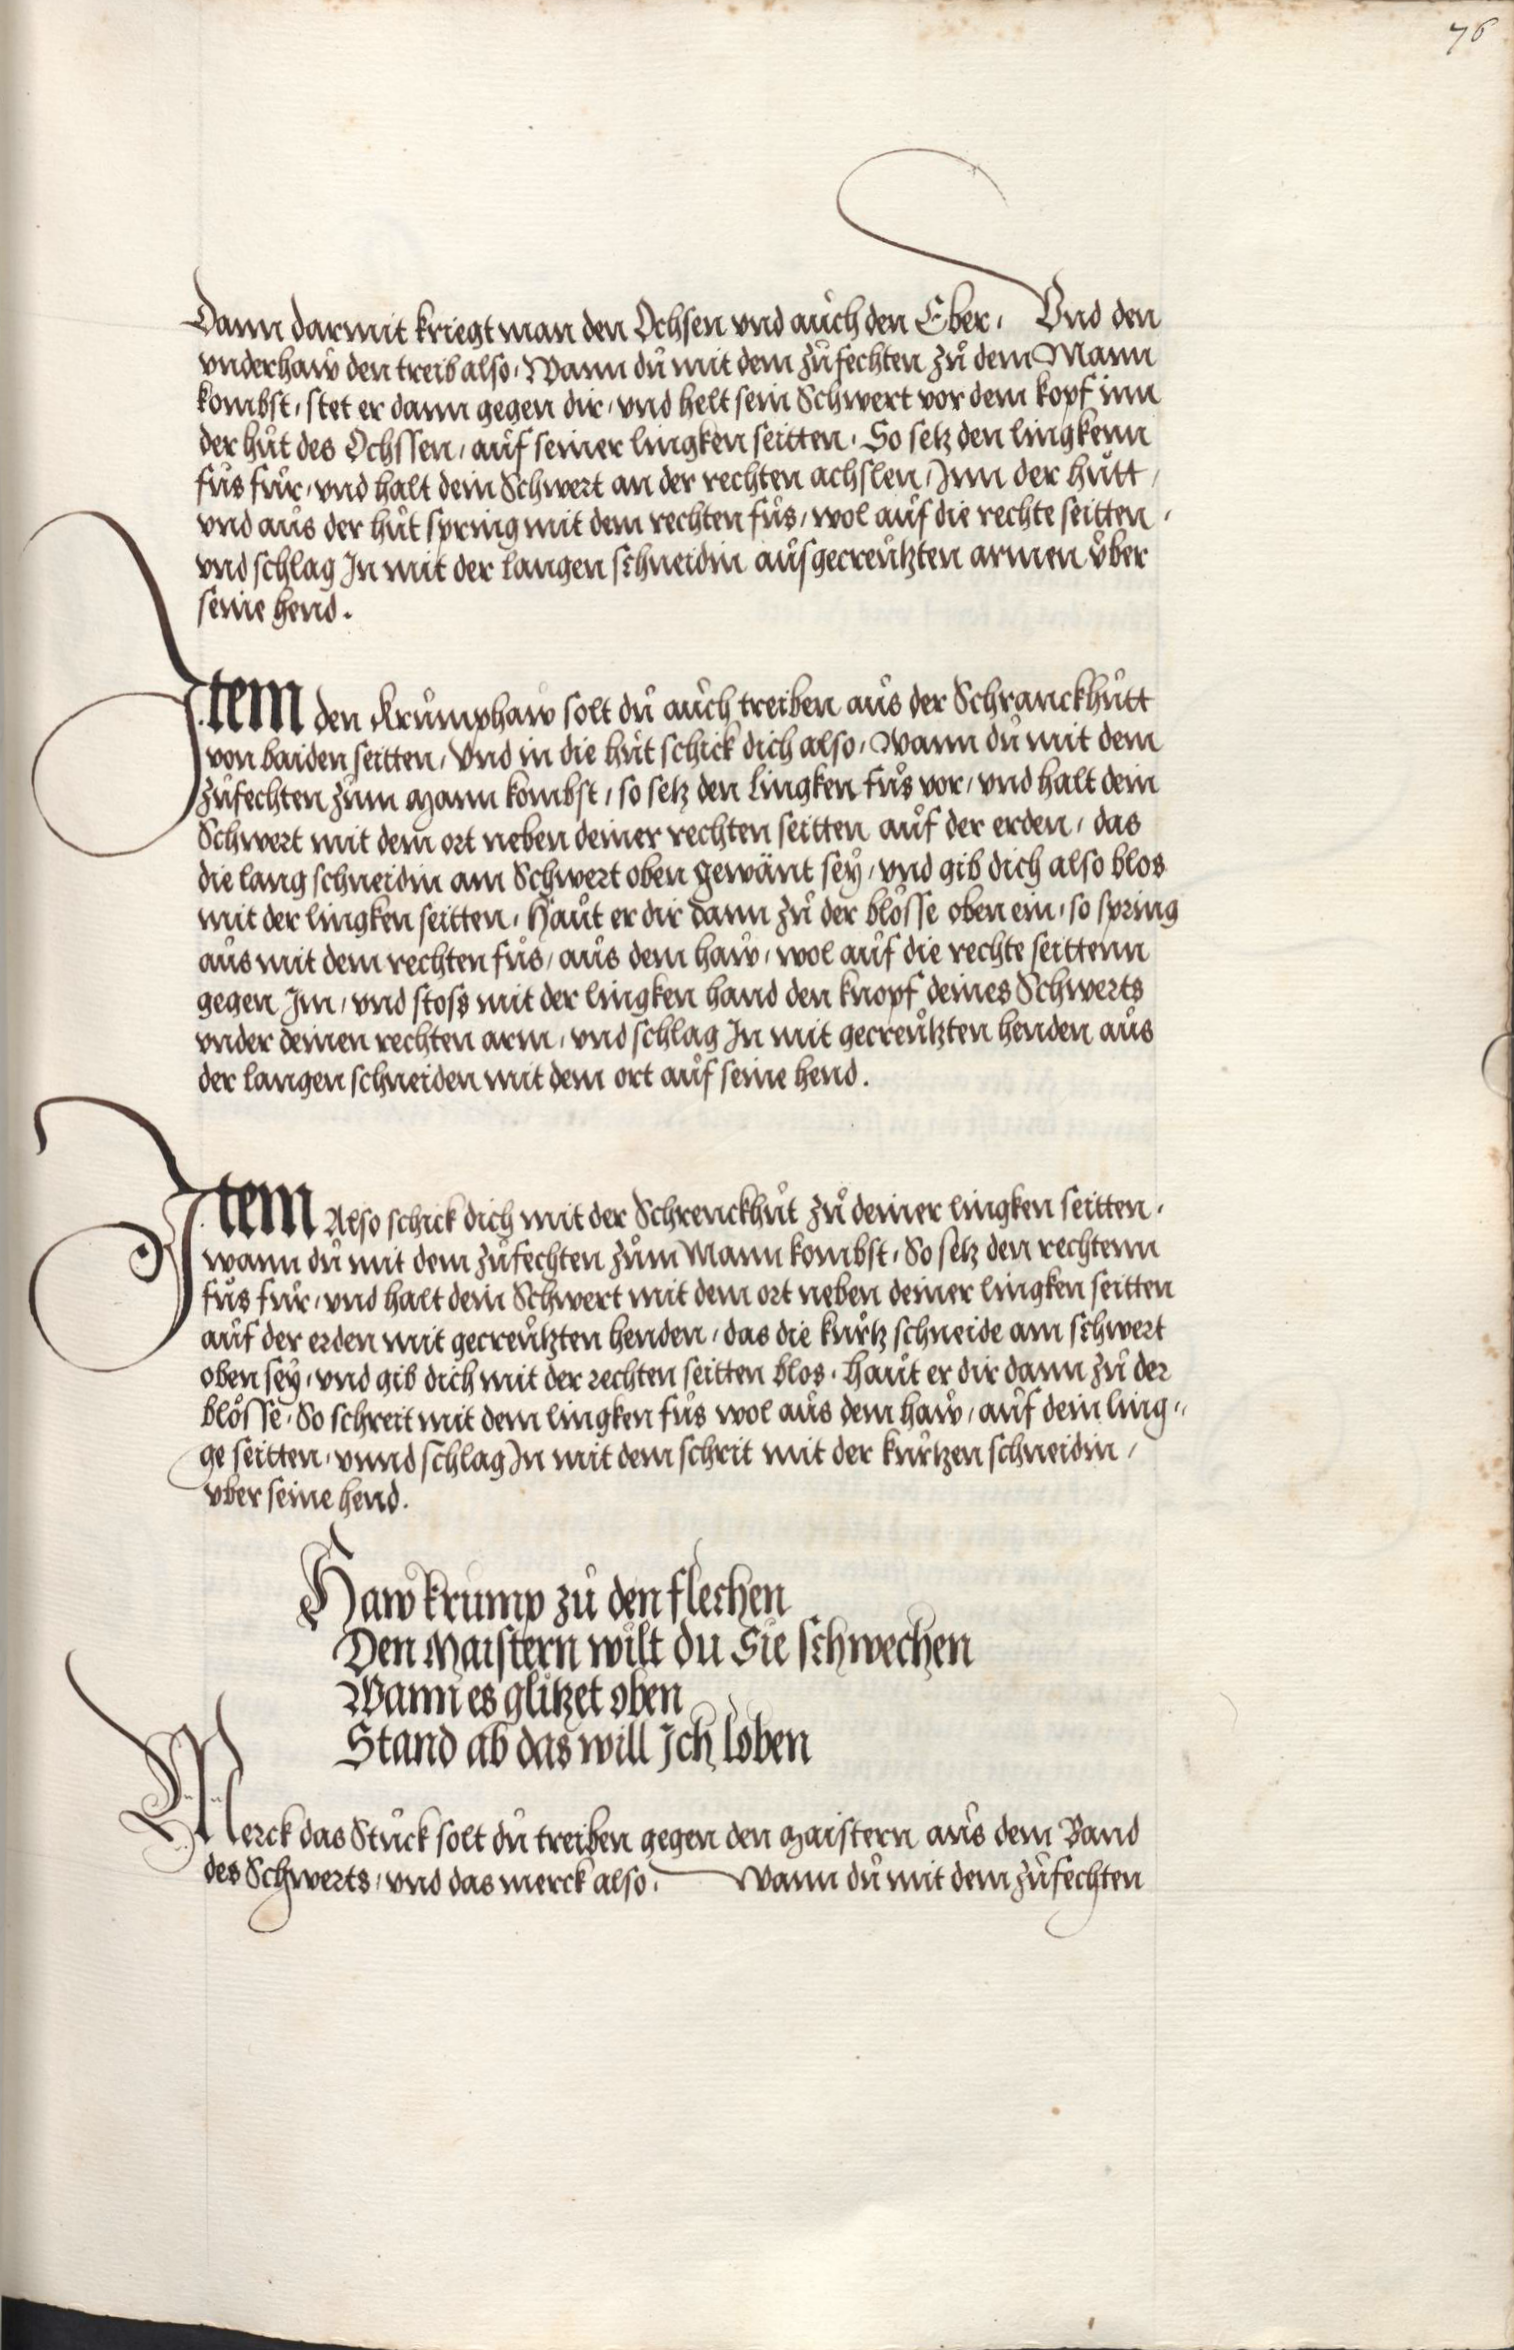 76
Dann darmit kriegt man den Ochsen vnd aůch den Eber, Vnd den
vnderhaw den treib also, Wann dů mit dem zůfechten zů dem Mann
kombst, stet er dann gegen dir, vnd helt sein Schwert vor dem kopf inn
der hůt des Ochssen, aůf seiner lingken seitten, So setz den lingkenn
fůs fůr, vnd halt dein Schwert an der rechten achslen, Jnn der hůtt,
vnd aůs der hůt spring mit dem rechten fůs, wol aůf die rechte seitten,
vnd schlag Jn mit der langen schneidin aůsgecreůtzten armen v̊ber
seine hend.
Item den Krůmphaw solt dů aůch treiben aůs der Schranckhůtt
von baiden seitten, Vnd in die hůt schick dich also, Wann dů mit dem
zůfechten zům Mann kombst, so setz den lingken fůs vor, vnd halt dein
Schwert mit dem ort neben deiner rechten seitten aůf der erden, das
die lang schneidin am Schwert oben gewänt seÿ, vnd gib dich also blos
mit der lingken seitten, Haůt er dir dann zů der blösse oben ein, so spring
aůs mit dem rechten fůs, aůs dem haw, wol aůf die rechte seittenn
gegen Jm, vnd stoss mit der lingken hand den knopf deines Schwerts
vnder deinen rechten arm, vnd schlag Jn mit gecreůtzten henden aůs
der langen schneiden mit dem ort aůf seine hend.
Item Also schick dich mit der Schrenckhůt zů deiner lingken seitten,
wann dů mit dem zůfechten zům Mann kombst, So setz den rechtenn
fůs fůr, vnd halt dein Schwert mit dem ort neben deiner lingken seitten
aůf der erden mit gecreůtzten henden, das die kůrtz schneide am schwert
oben seÿ, vnd gib dich mit der rechten seitten blos, haůt er dir dann zů der
blösse, So schreit mit dem lingken fůs wol aůs dem haw, aůf dein ling,,
ge seitten, vnnd schlag Jn mit dem schrit mit der kůrtzen schneidin,
vber seine hend.
Haw krump zů den flechen
Den Maistern wilt du Sie schwechen
Wann es glitzet oben
Stand ab das will Jch loben
Merck das Stůck solt dů treiben gegen den Maistern aůs dem Band
des Schwerts, vnd das merck also, Wann dů mit dem zůfechten